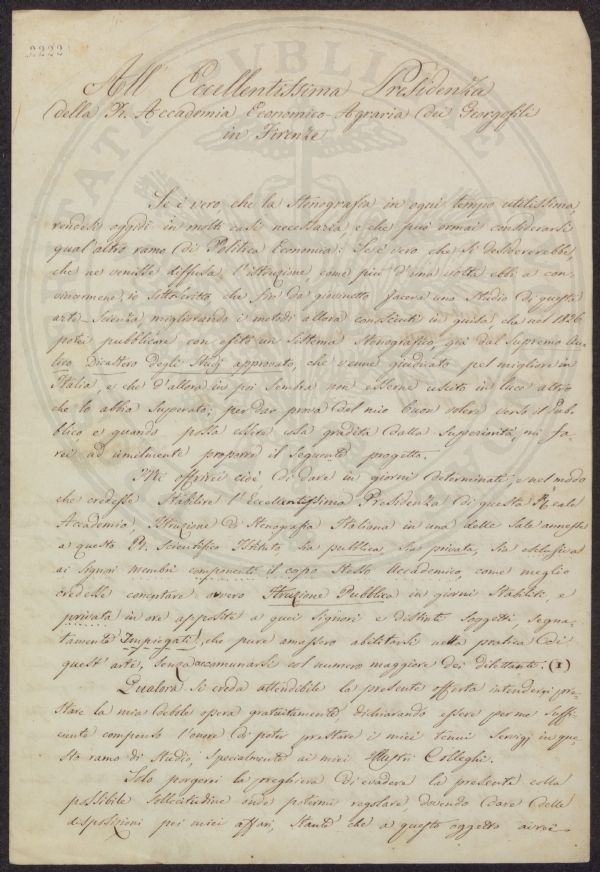 2222
All' Eccellentissima Presidenza
della R. Accademia Economico-Agraria dei Georgofili
in Firenze
Se è vero che la Stenografia in ogni tempo utilissima
rendesi oggidì in molti casi necessaria e che può ormai considerarsi
qual altro ramo di Politica Economia: Se è vero che si desidererebbe
che ne venisse diffusa l'istruzione come più d'una volta ebbi a con-
vincermene, io sottoscritto che fin da giovinetto faceva uno Studio di quest'
arte-Scienza migliorando i metodi allora conosciuti in guisa, che nel 1826
potei pubblicare con esito un Sistema Stenografico, già dal Supremo Au-
lico Dicastero degli Studj approvato, che venne giudicato pel migliore in
Italia, e che d'allora in poi sembra non esserne uscito in luce altro
che lo abbia superato; per dar prova del mio buon volere verso il Pub-
blico e quando possa essere cosa gradita dalla Superiorità, mi fo-
rei ad umilmente proporre il seguente progetto.
Mi offrirei cioè di dare in giorni determinati, e nel modo
che credesse stabilire l'Eccellentissima Presidenza di questa Reale
Accademia, Istruzione di Stenografia Italiana in una delle Sale annesse
a questo R. Scientifico Istituto, sia pubblica, sia privata, sia esclusiva
ai Signori membri componenti il corpo stesso Accademico, come meglio
credesse ovvero Istruzione Pubblica in giorni stabiliti, e
privata in ore apposite a quei Signori e distinti soggetti, segna-
tamente Impiegati, che pure amassero abilitarsi nella pratica di
quest' arte, senza accomunarsi col numero maggiore dei dilettanti. (1)
Qualora si creda attendibile la presente offerta intenderei pre-
stare la mia debole opera gratuitamente, dichiarando essere per me suffi-
ciente compenso l'onore di poter prestare i miei tenui servigj in que-
sto ramo di Studio, specialmente ai miei Illustri Colleghi.
Solo porgerei la preghiera di evadere la presente colla
possibile sollecitudine onde potermi regolare dovendo dare delle
disposizioni pei miei affari, stante che a questo oggetto avrei